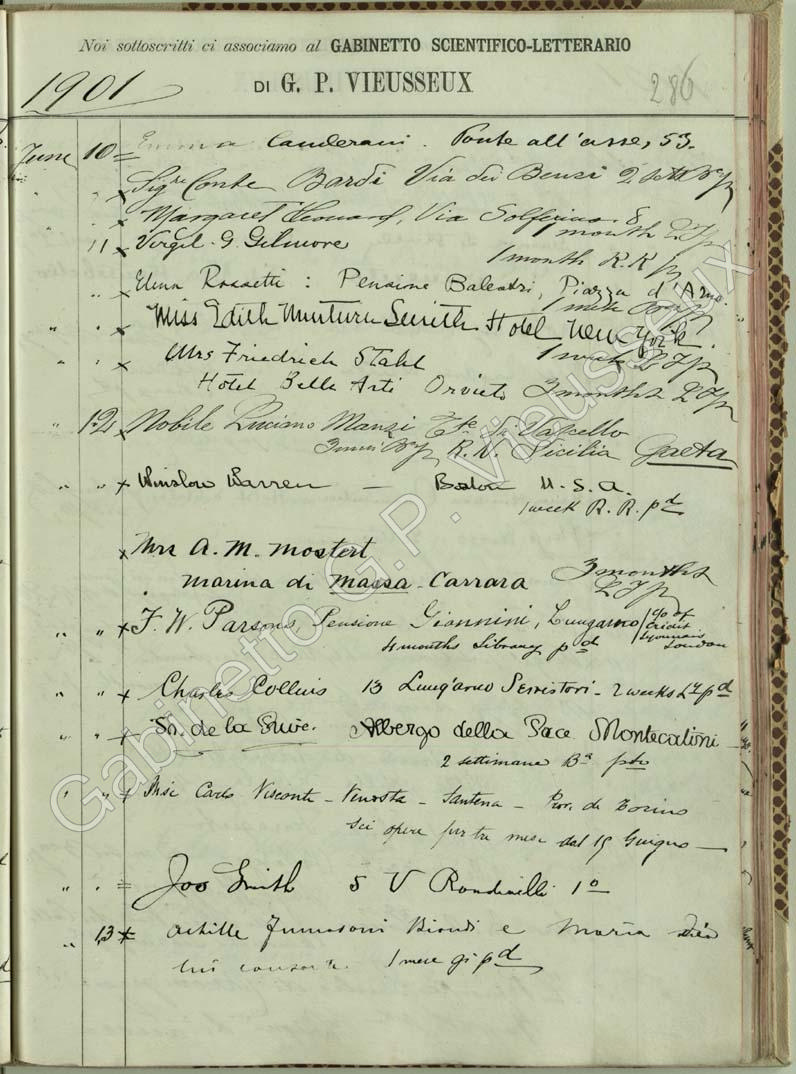 Noi sottoscritti ci associamo al GABINETTO SCIENTIFICO-LETTERARIO
1901
DI G. P. VIEUSSEUX
286
June 10 = Emma Landerani. Ponte all'asse, 53.
" x Conte Bardi Via dei Benzi 2
" x Margaret Leonard, Via Solferino 8
1 month L Y p
11 x Virgil G. Gilmore
1 month R.R p
" x Elena Rossetti : Pensione Balestri, Piazza d'Arno.
" " x Miss Edith Minturn Smith Hotel New York.
1 week L Y p
" " x Mrs Friedrich Stahl
Hôtel Belle Arti Orvieto 3 months L Y p
" 12 x Nobile Luciano Manzi
R. N. Sicilia Gaeta
" " x Winslow Warren — Boston U.S.A.
1 week R. R. pd
x Mrs A. M. Mostert
Marina di Massa-Carrara 3 months
L Y p
" " x F. W. Parsons, Pensione Giannini, Lungarno c/o of Crédit Lyonnais London
4 months Library pd
" " x Charles Collins 13 Lung'arno Serristori - 2 weeks L Y pd
" " x de la Albergo della Pace Montecatini
2 settimane
" " x Carlo Visconti - Venosta - Santena - Prov. di Torino
sei opere per tre mesi dal 15 Giugno —
" " = Joo Smith 5 V Rondinelli 1º
" 13 x Achille Fumasoni Biondi e Maria
1 mese pd
Gabinetto G.P. Vieusseux